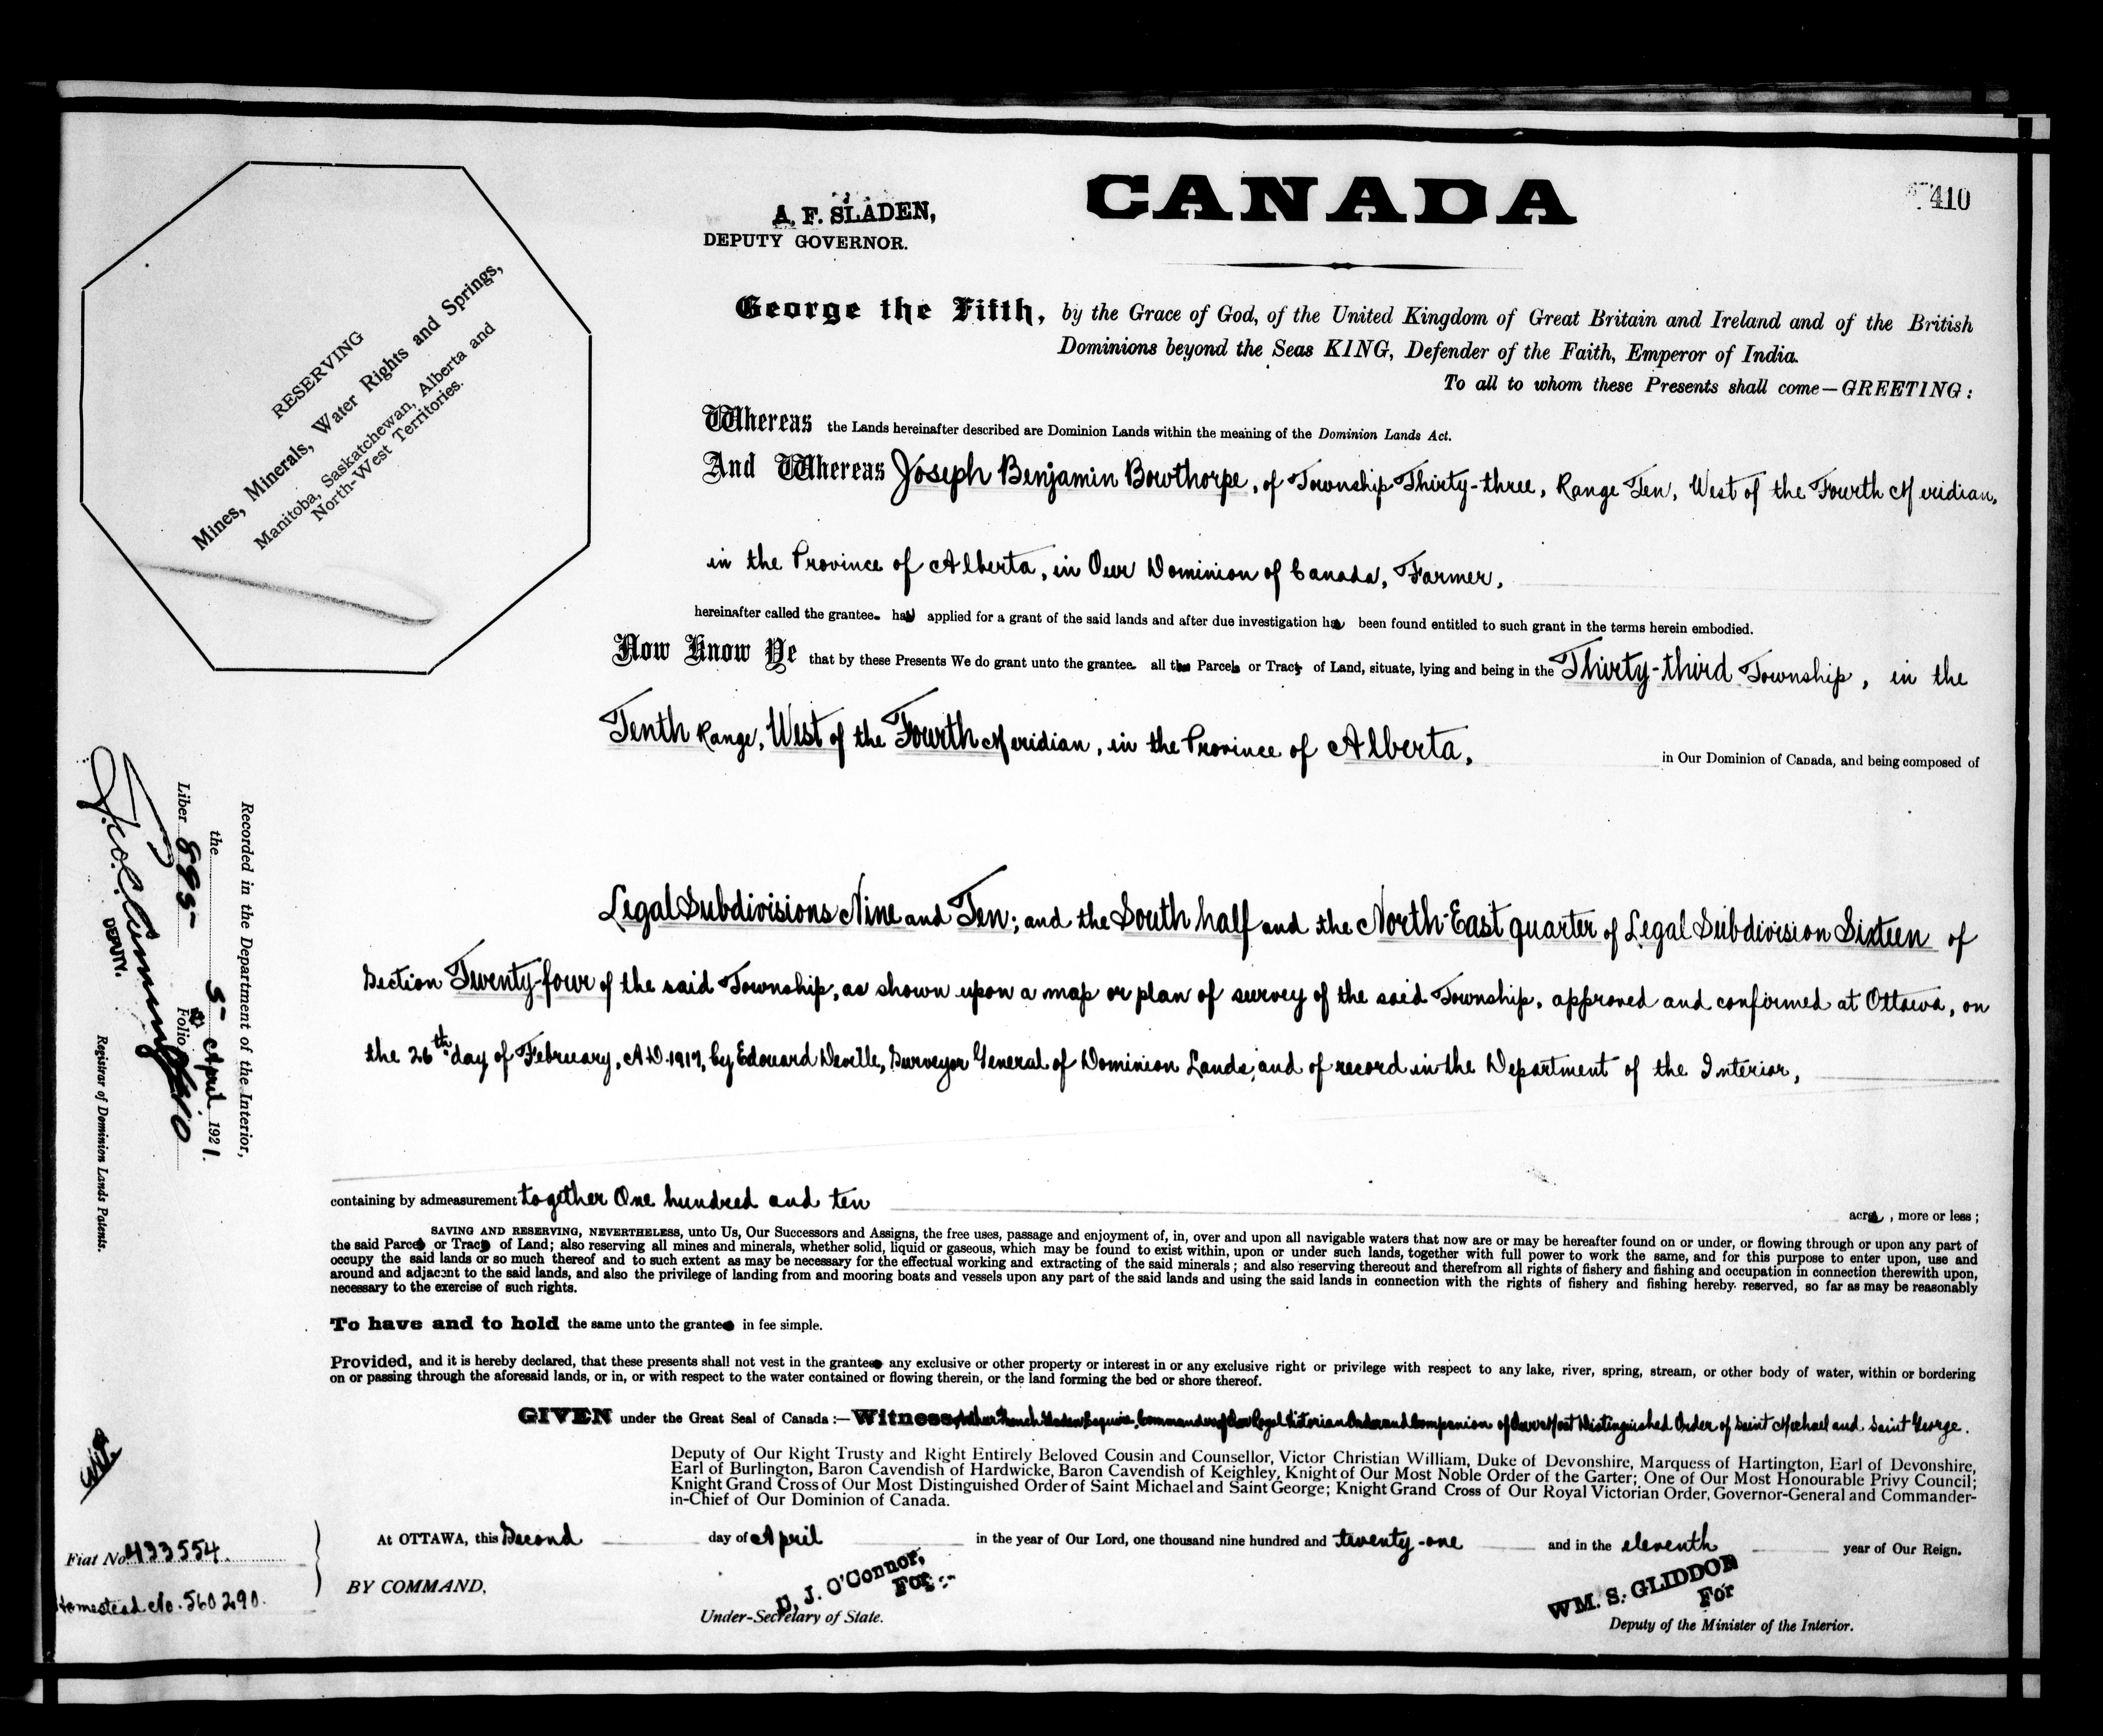 CANADA
410
A. F. SLADEN,
DEPUTY GOVERNOR.
RESERVING
Mines, Minerals, Water Rights and Springs,
Manitoba, Saskatchewan, Alberta and
North-West Territories.
George the Fifth, by the Grace of God, of the United Kingdom of Great Britain and Ireland and of the British
Dominions beyond the Seas KING, Defender of the Faith, Emperor of India.
To all to whom these Presents shall come—GREETING:
Whereas the Lands hereinafter described are Dominion Lands within the meaning of the Dominion Lands Act.
And Whereas Joseph Benjamin Bowthorpe, of Township Thirty-three, Range Ten, West of the Fourth Meridian,
in the Province of Alberta, in Our Dominion of Canada, Farmer,
hereinafter called the grantee has applied for a grant of the said lands and after due investigation has been found entitled to such grant in the terms herein embodied.
Now Know Ye that by these Presents We do grant unto the grantee all the Parcel or Tract of Land, situate, lying and being in the Thirty-third Township, in the
Tenth Range, West of the Fourth Meridian, in the Province of Alberta, in Our Dominion of Canada, and being composed of
Legal Subdivisions Nine and Ten; and the South half and the North-East quarter of Legal Subdivision Sixteen of
Section Twenty-four of the said Township, as shown upon a map or plan of survey of the said Township, approved and confirmed at Ottawa, on
the 26th day of February, A.D. 1917, by Edouard Deville, Surveyor General of Dominion Lands, and of record in the Department of the Interior,
containing by admeasurement together One hundred and ten acres, more or less;
SAVING AND RESERVING, NEVERTHELESS, unto Us, Our Successors and Assigns, the free uses, passage and enjoyment of, in, over and upon all navigable waters that now are or may be hereafter found on or under, or flowing through or upon any part of
the said Parcel or Tract of Land; also reserving all mines and minerals, whether solid, liquid or gaseous, which may be found to exist within, upon or under such lands, together with full power to work the same, and for this purpose to enter upon, use and
occupy the said lands or so much thereof and to such extent as may be necessary for the effectual working and extracting of the said minerals; and also reserving thereout and therefrom all rights of fishery and fishing and occupation in connection therewith upon,
around and adjacent to the said lands, and also the privilege of landing from and mooring boats and vessels upon any part of the said lands and using the said lands in connection with the rights of fishery and fishing hereby reserved, so far as may be reasonably
necessary to the exercise of such rights.
To have and to hold the same unto the grantee in fee simple.
Provided, and it is hereby declared, that these presents shall not vest in the grantee any exclusive or other property or interest in or any exclusive right or privilege with respect to any lake, river, spring, stream, or other body of water, within or bordering
on or passing through the aforesaid lands, or in, or with respect to the water contained or flowing therein, or the land forming the bed or shore thereof.
GIVEN under the Great Seal of Canada:—Witness, Arthur French Sladen Esquire, Commander of Our Royal Victorian Order and Companion of Our Most Distinguished Order of Saint Michael and Saint George.
Deputy of Our Right Trusty and Right Entirely Beloved Cousin and Counsellor, Victor Christian William, Duke of Devonshire, Marquess of Hartington, Earl of Devonshire,
Earl of Burlington, Baron Cavendish of Hardwicke, Baron Cavendish of Keighley, Knight of Our Most Noble Order of the Garter; One of Our Most Honourable Privy Council;
Knight Grand Cross of Our Most Distinguished Order of Saint Michael and Saint George; Knight Grand Cross of Our Royal Victorian Order, Governor-General and Commander-
in-Chief of Our Dominion of Canada.
At OTTAWA, this Second day of April in the year of Our Lord, one thousand nine hundred and twenty-one and in the eleventh year of Our Reign.
BY COMMAND,
D. J. O'Connor,
For
Under-Secretary of State.
WM. S. GLIDDON
For
Deputy of the Minister of the Interior.
Recorded in the Department of the Interior,
the 5 April 1921.
Liber 895 Folio 410
DEPUTY.
Registrar of Dominion Lands Patents.
Fiat No 433554.
Homestead No. 560290.